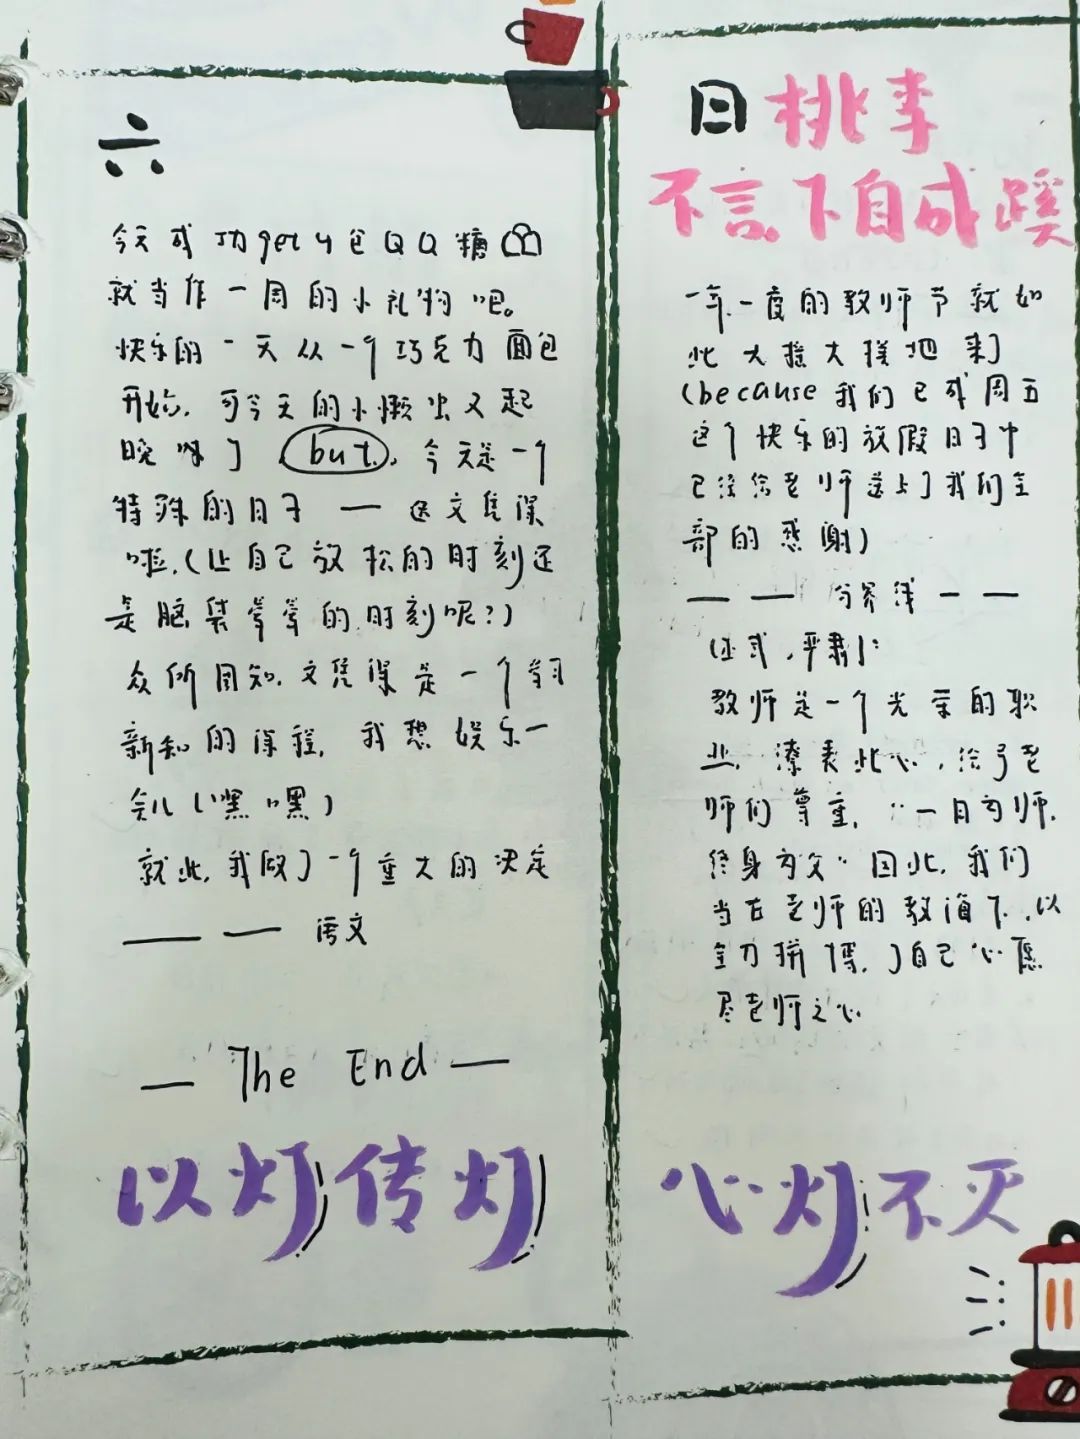 六
今天成功get 4包QQ糖
就当作一周的小礼物吧。
快乐的一天从一个巧克力面包
开始,可今天的小懒虫又起
晚啦了,but,今天是一个
特殊的日子——送文凭课
啦,(让自己放松的时刻还
是脑袋晕晕的时刻呢?)
众所周知,文凭课是一个学习
新知的课程,我想娱乐一
会儿(嘿嘿)
就此,我做了一个重大的决定
—— —— 语文
— The End —
以灯传灯
日 桃李
不言。下自成蹊
一年一度的教师节就如
此大摇大摆地来了
(because我们已成周五
这个快乐的放假日子中
已经给老师送上了我们全
部的感谢)
— — 分界线 — —
(正式,严肃):
教师是一个光荣的职
业,潦表此心,给予老
师们尊重,“一日为师,
终身为父”因此,我们
当在老师的教诲下,以
全力拼搏,了自己心愿
尽老师之心
心灯不灭